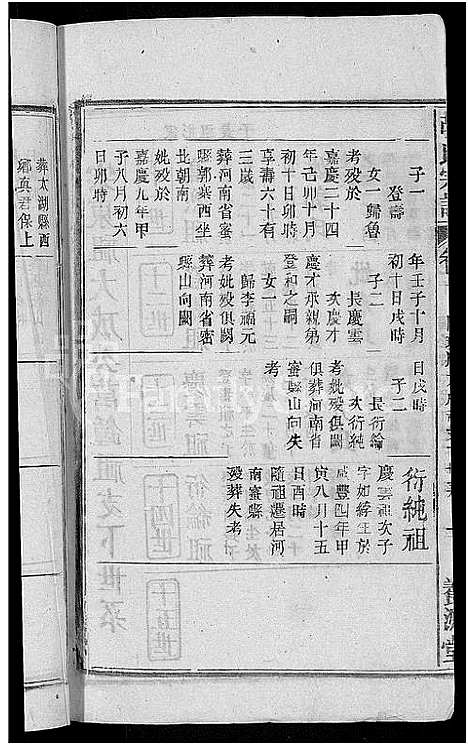 子一
登壽
女一歸魯
考歿於
嘉慶二十四
年己卯十月
初十日卯時
享壽六十有
三歲
葬河南省蜜
縣郭寨西坐
北朝南
妣歿於
嘉慶九年甲
子八月初六
日卯時
年壬子十月
初十日戌時
子二
長慶雲
次慶才
慶才承親弟
登和之嗣
女一
歸李福元
考妣歿俱闕
葬河南省密
縣山向闕
日戌時
子二
長衍綸
次衍純
考妣歿俱闕
俱葬河南省
蜜縣山向失
考
衍純祖
慶雲祖次子
字如綍生於
咸豐四年甲
寅八月十五
日酉時
隨祖遷居河
南蜜縣
歿葬失考
葬太湖縣西
鄉真君保上